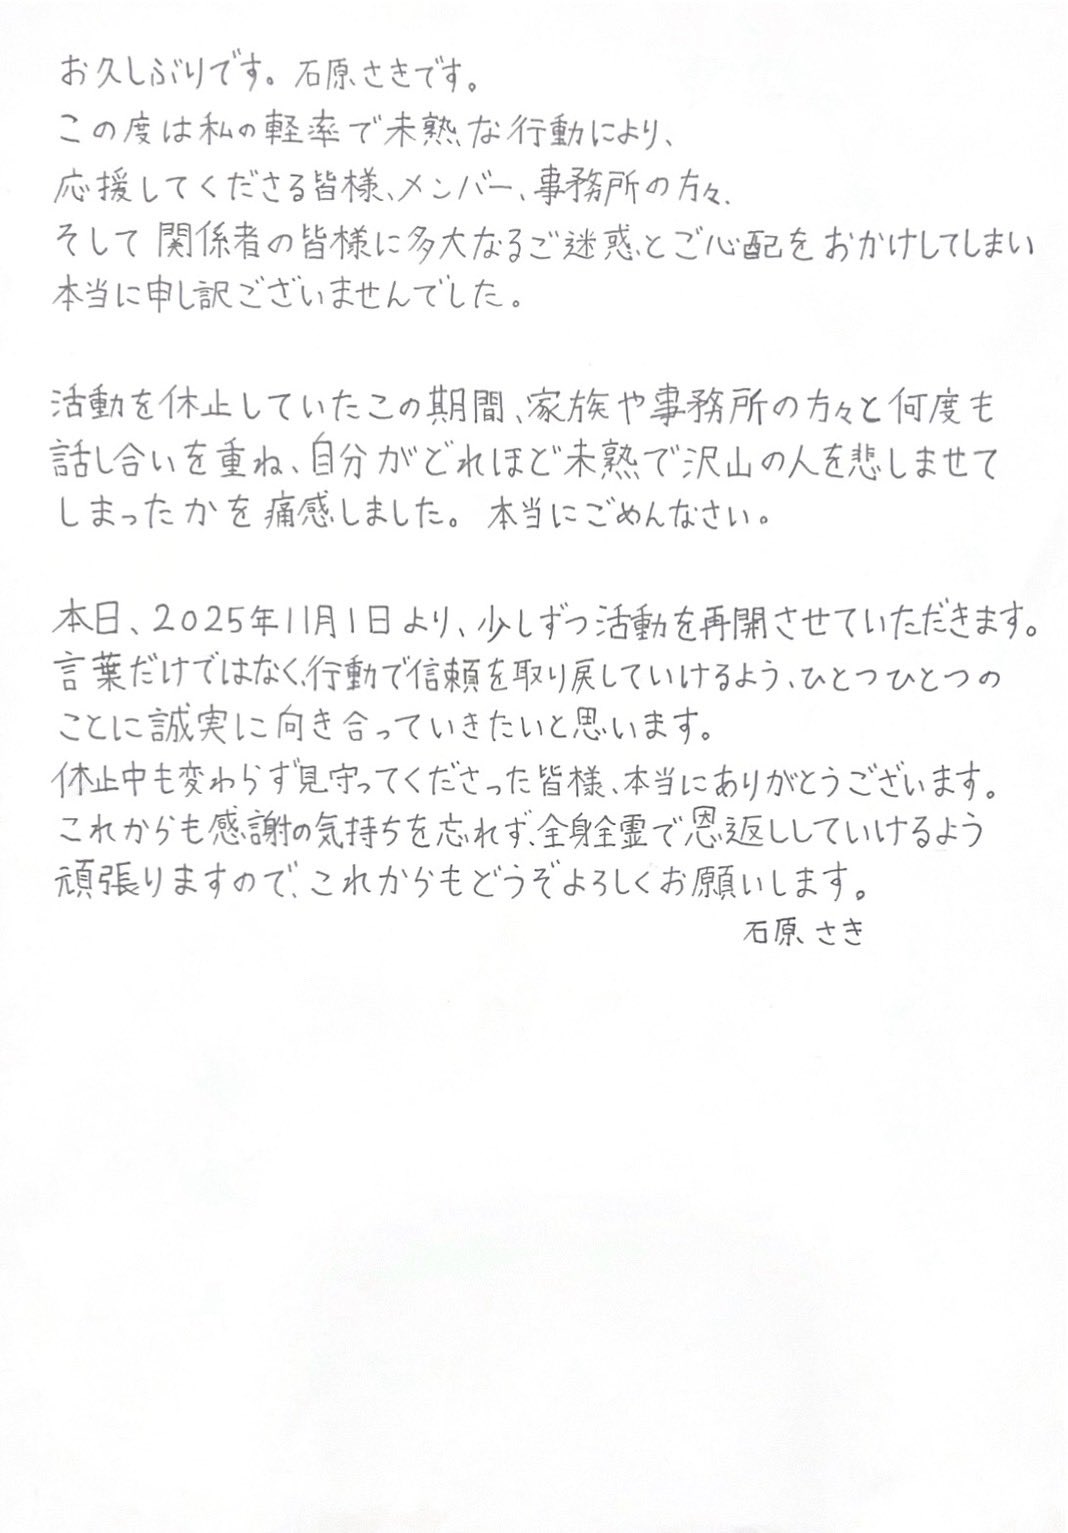 お久しぶりです。石原さきです。
この度は私の軽率で未熟な行動により、
応援してくださる皆様、メンバー、事務所の方々、
そして関係者の皆様に多大なるご迷惑とご心配をおかけしてしまい
本当に申し訳ございませんでした。
活動を休止していたこの期間、家族や事務所の方々と何度も
話し合いを重ね、自分がどれほど未熟で沢山の人を悲しませて
しまったかを痛感しました。本当にごめんなさい。
本日、2025年11月1日より、少しずつ活動を再開させていただきます。
言葉だけではなく、行動で信頼を取り戻していけるよう、ひとつひとつの
ことに誠実に向き合っていきたいと思います。
休止中も変わらず見守ってくださった皆様、本当にありがとうございます。
これからも感謝の気持ちを忘れず、全身全霊で恩返ししていけるよう
頑張りますので、これからもどうぞよろしくお願いします。
石原さき